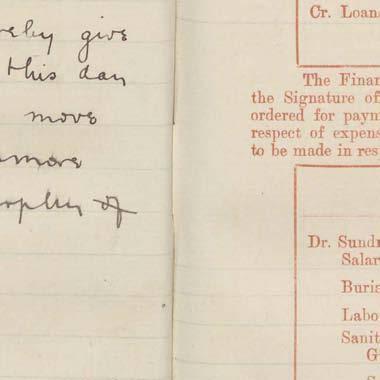 give
this day
move
of
Cr. Loan
The Finan
the Signature of
ordered for paym
respect of expens
to be made in res
Dr. Sundr
Salar
Buria
Labo
Sanit
G